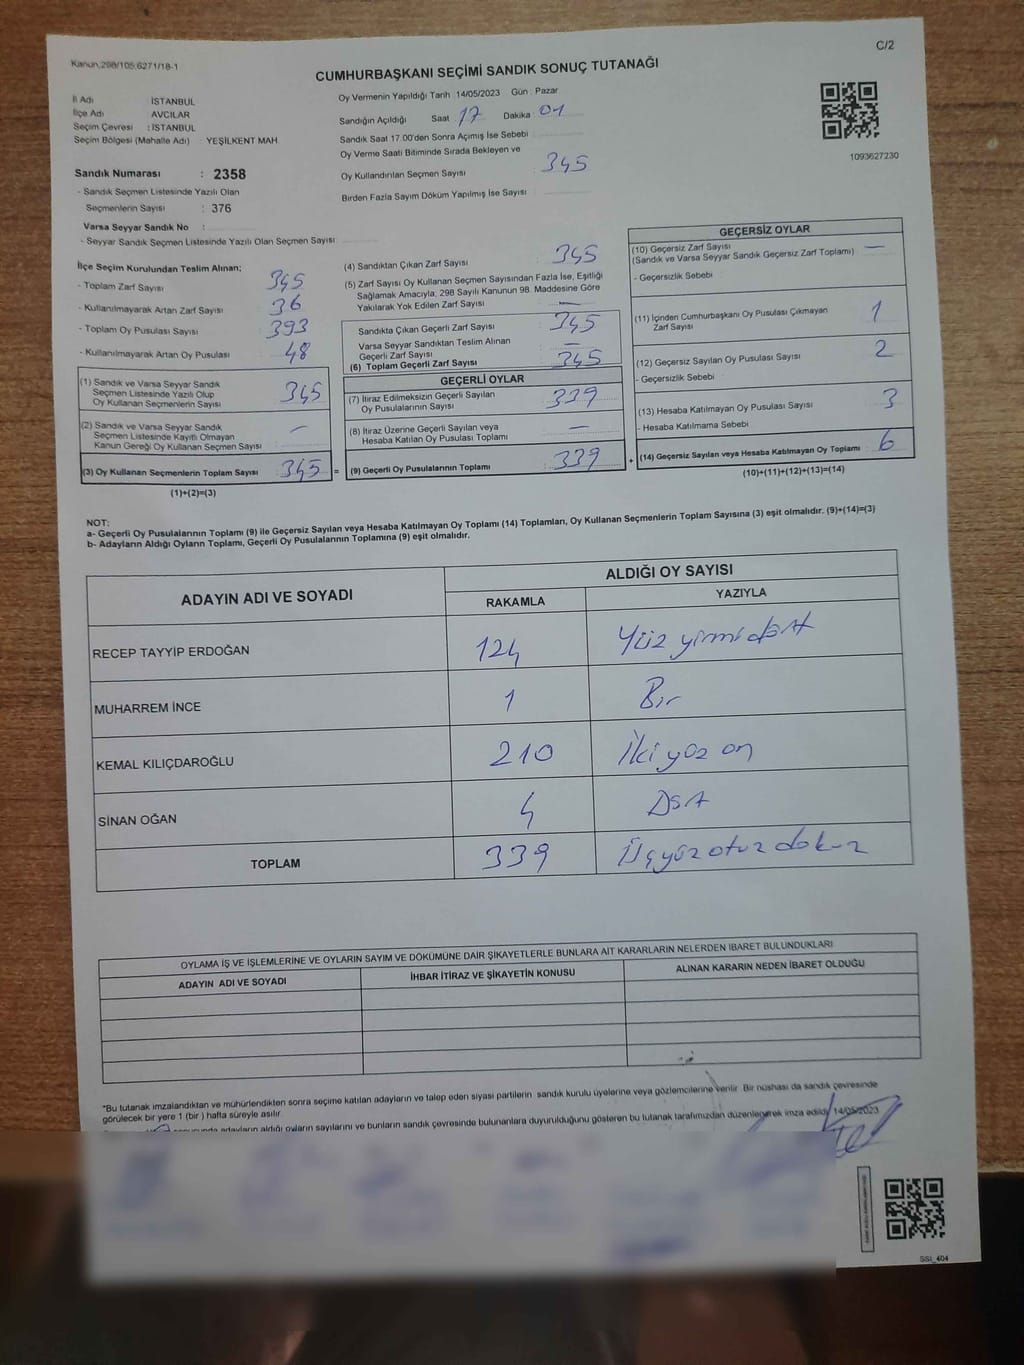 Kanun,298/105,6271/18-1
C/2
CUMHURBAŞKANI SEÇİMİ SANDIK SONUÇ TUTANAĞI
İl Adı : İSTANBUL
İlçe Adı AVCILAR
Seçim Çevresi : İSTANBUL
Seçim Bölgesi (Mahalle Adı) : YEŞİLKENT MAH
Oy Vermenin Yapıldığı Tarih 14/05/2023 Gün : Pazar
Sandığın Açıldığı Saat 17 Dakika 01
Sandık Saat 17.00'den Sonra Açımış İse Sebebi
Oy Verme Saati Bitiminde Sırada Bekleyen ve
Oy Kullandırılan Seçmen Sayısı 345
Birden Fazla Sayım Döküm Yapılmış İse Sayısı
1093627230
Sandık Numarası : 2358
- Sandık Seçmen Listesinde Yazılı Olan
Seçmenlerin Sayısı : 376
Varsa Seyyar Sandık No :
- Seyyar Sandık Seçmen Listesinde Yazılı Olan Seçmen Sayısı:
İlçe Seçim Kurulundan Teslim Alınan;
- Toplam Zarf Sayısı 345
- Kullanılmayarak Artan Zarf Sayısı 36
- Toplam Oy Pusulası Sayısı 393
- Kullanılmayarak Artan Oy Pusulası 48
(1) Sandık ve Varsa Seyyar Sandık
Seçmen Listesinde Yazılı Olup
Oy Kullanan Seçmenlerin Sayısı 345
(2) Sandık ve Varsa Seyyar Sandık
Seçmen Listesinde Kayıtlı Olmayan
Kanun Gereği Oy Kullanan Seçmen Sayısı –
(3) Oy Kullanan Seçmenlerin Toplam Sayısı 345 =
(1)+(2)=(3)
(4) Sandıktan Çıkan Zarf Sayısı 345
(5) Zarf Sayısı Oy Kullanan Seçmen Sayısından Fazla İse, Eşitliği
Sağlamak Amacıyla, 298 Sayılı Kanunun 98. Maddesine Göre
Yakılarak Yok Edilen Zarf Sayısı —
Sandıkta Çıkan Geçerli Zarf Sayısı 345
Varsa Seyyar Sandıktan Teslim Alınan
Geçerli Zarf Sayısı —
(6) Toplam Geçerli Zarf Sayısı 345
GEÇERLİ OYLAR
(7) İtiraz Edilmeksizin Geçerli Sayılan
Oy Pusulalarının Sayısı 339
(8) İtiraz Üzerine Geçerli Sayılan veya
Hesaba Katılan Oy Pusulası Toplamı —
(9) Geçerli Oy Pusulalarının Toplamı 339 +
GEÇERSİZ OYLAR
(10) Geçersiz Zarf Sayısı —
(Sandık ve Varsa Seyyar Sandık Geçersiz Zarf Toplamı)
- Geçersizlik Sebebi
(11) İçinden Cumhurbaşkanı Oy Pusulası Çıkmayan
Zarf Sayısı 1
(12) Geçersiz Sayılan Oy Pusulası Sayısı 2
- Geçersizlik Sebebi
(13) Hesaba Katılmayan Oy Pusulası Sayısı 3
- Hesaba Katılmama Sebebi
(14) Geçersiz Sayılan veya Hesaba Katılmayan Oy Toplamı 6
(10)+(11)+(12)+(13)=(14)
NOT:
a- Geçerli Oy Pusulalarının Toplamı (9) ile Geçersiz Sayılan veya Hesaba Katılmayan Oy Toplamı (14) Toplamları, Oy Kullanan Seçmenlerin Toplam Sayısına (3) eşit olmalıdır. (9)+(14)=(3)
b- Adayların Aldığı Oyların Toplamı, Geçerli Oy Pusulalarının Toplamına (9) eşit olmalıdır.
ADAYIN ADI VE SOYADI
ALDIĞI OY SAYISI
RAKAMLA YAZIYLA
RECEP TAYYİP ERDOĞAN 124 Yüz yirmi dört
MUHARREM İNCE 1 Bir
KEMAL KILIÇDAROĞLU 210 İki yüz on
SİNAN OĞAN 4 Dört
TOPLAM 339 Üçyüz otuz dokuz
OYLAMA İŞ VE İŞLEMLERİNE VE OYLARIN SAYIM VE DÖKÜMÜNE DAİR ŞİKAYETLERLE BUNLARA AİT KARARLARIN NELERDEN İBARET BULUNDUKLARI
ADAYIN ADI VE SOYADI İHBAR İTİRAZ VE ŞİKAYETİN KONUSU ALINAN KARARIN NEDEN İBARET OLDUĞU
*Bu tutanak imzalandıktan ve mühürlendikten sonra seçime katılan adayların ve talep eden siyasi partilerin sandık kurulu üyelerine veya gözlemcilerine verilir. Bir nüshası da sandık çevresinde
görülecek bir yere 1 (bir ) hafta süreyle asılır.
adayların aldığı oyların sayılarını ve bunların sandık çevresinde bulunanlara duyurulduğunu gösteren bu tutanak tarafımızdan düzenlenerek imza edildi. 14/05/2023
SSİ_404